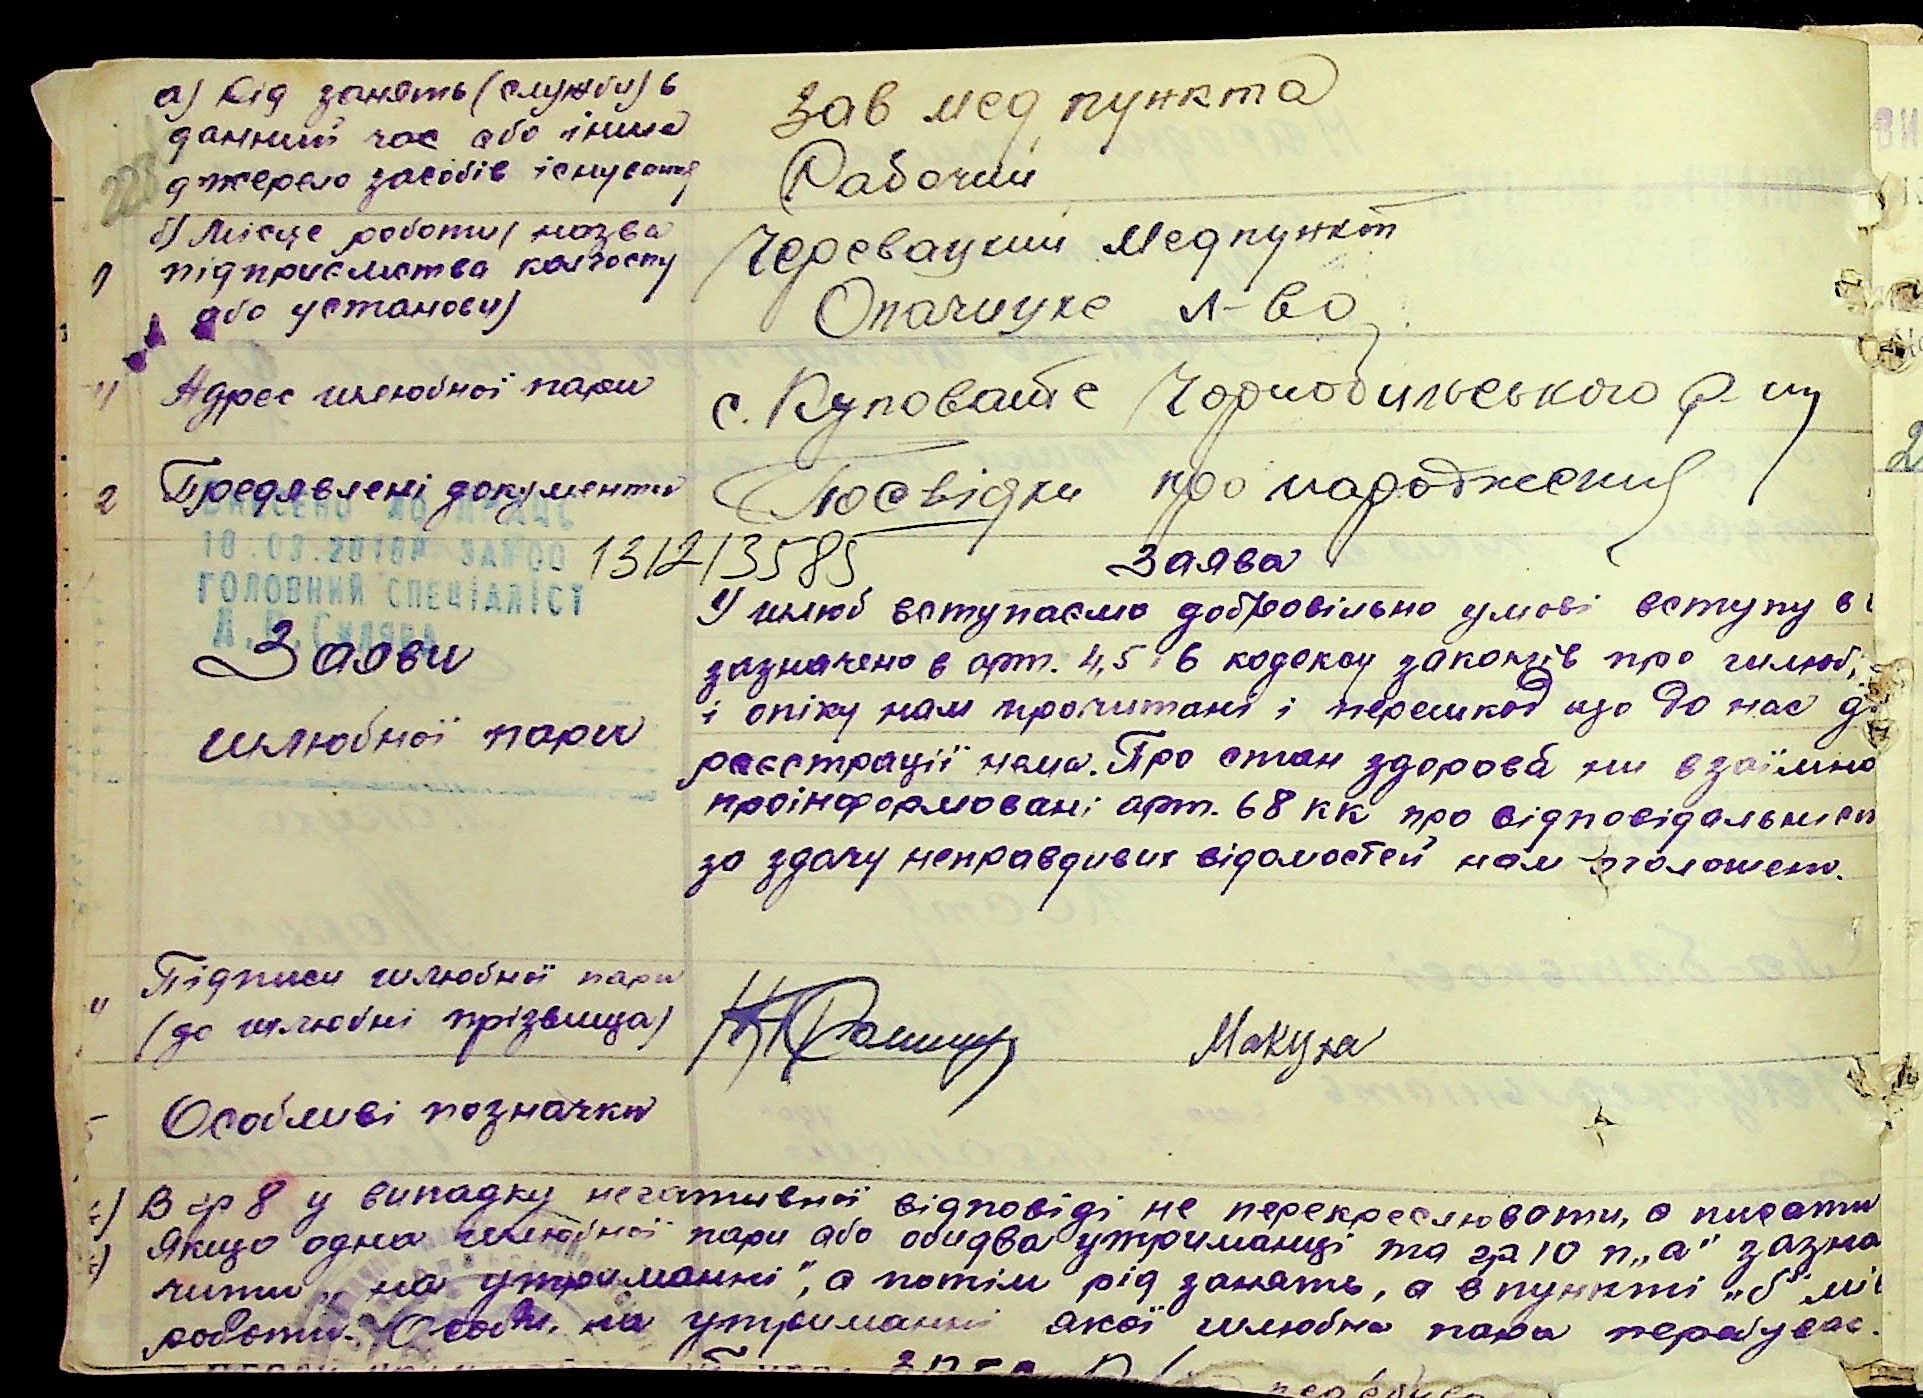 а) Рід занять (служби) в
данний час або інше
джерело засобів існування
Зав мед пункта
Рабочий
228
б) Місце роботи/ назва
підприємства колгоспу
або установи)
Черевацкий Медпункт
Опачицке л-во
11 Адрес шлюбної пари
с. Куповате Чорнобильського р-ну
2 Предявлені документи
Посвідки про народження
ВНЕСЕНО ДО
18.03.2016р ЗА№00
ГОЛОВНИЙ СПЕЦІАЛІСТ
13/2/3585
Заяви
шлюбної пари
Заява
У шлюб вступаємо добровільно умові вступу в
зазначено в арт. 4,5 і 6 кодексу законів про шлюб,
і опіку нам прочитані і перешкод що до нас д
реєстрації нема. Про стан здоровя ми взаїмно
проінформовані арт. 68 КК про відповідальніст
за здачу неправдивих відомостей нам оголошено.
Підписи шлюбної пари
(до шлюбні прізвища)
Макуха
Особливі позначки
В гр 8 у випадку негативної відповіді не перекреслювати, а писати
Якщо одна шлюбної пари або обидва утриманці та гр 10 п „а" зазна
чити „на утриманні", а потім рід занять, а в пункті „б" мі
роботи. Особи, на утриманні якої шлюбна пара перебуває.